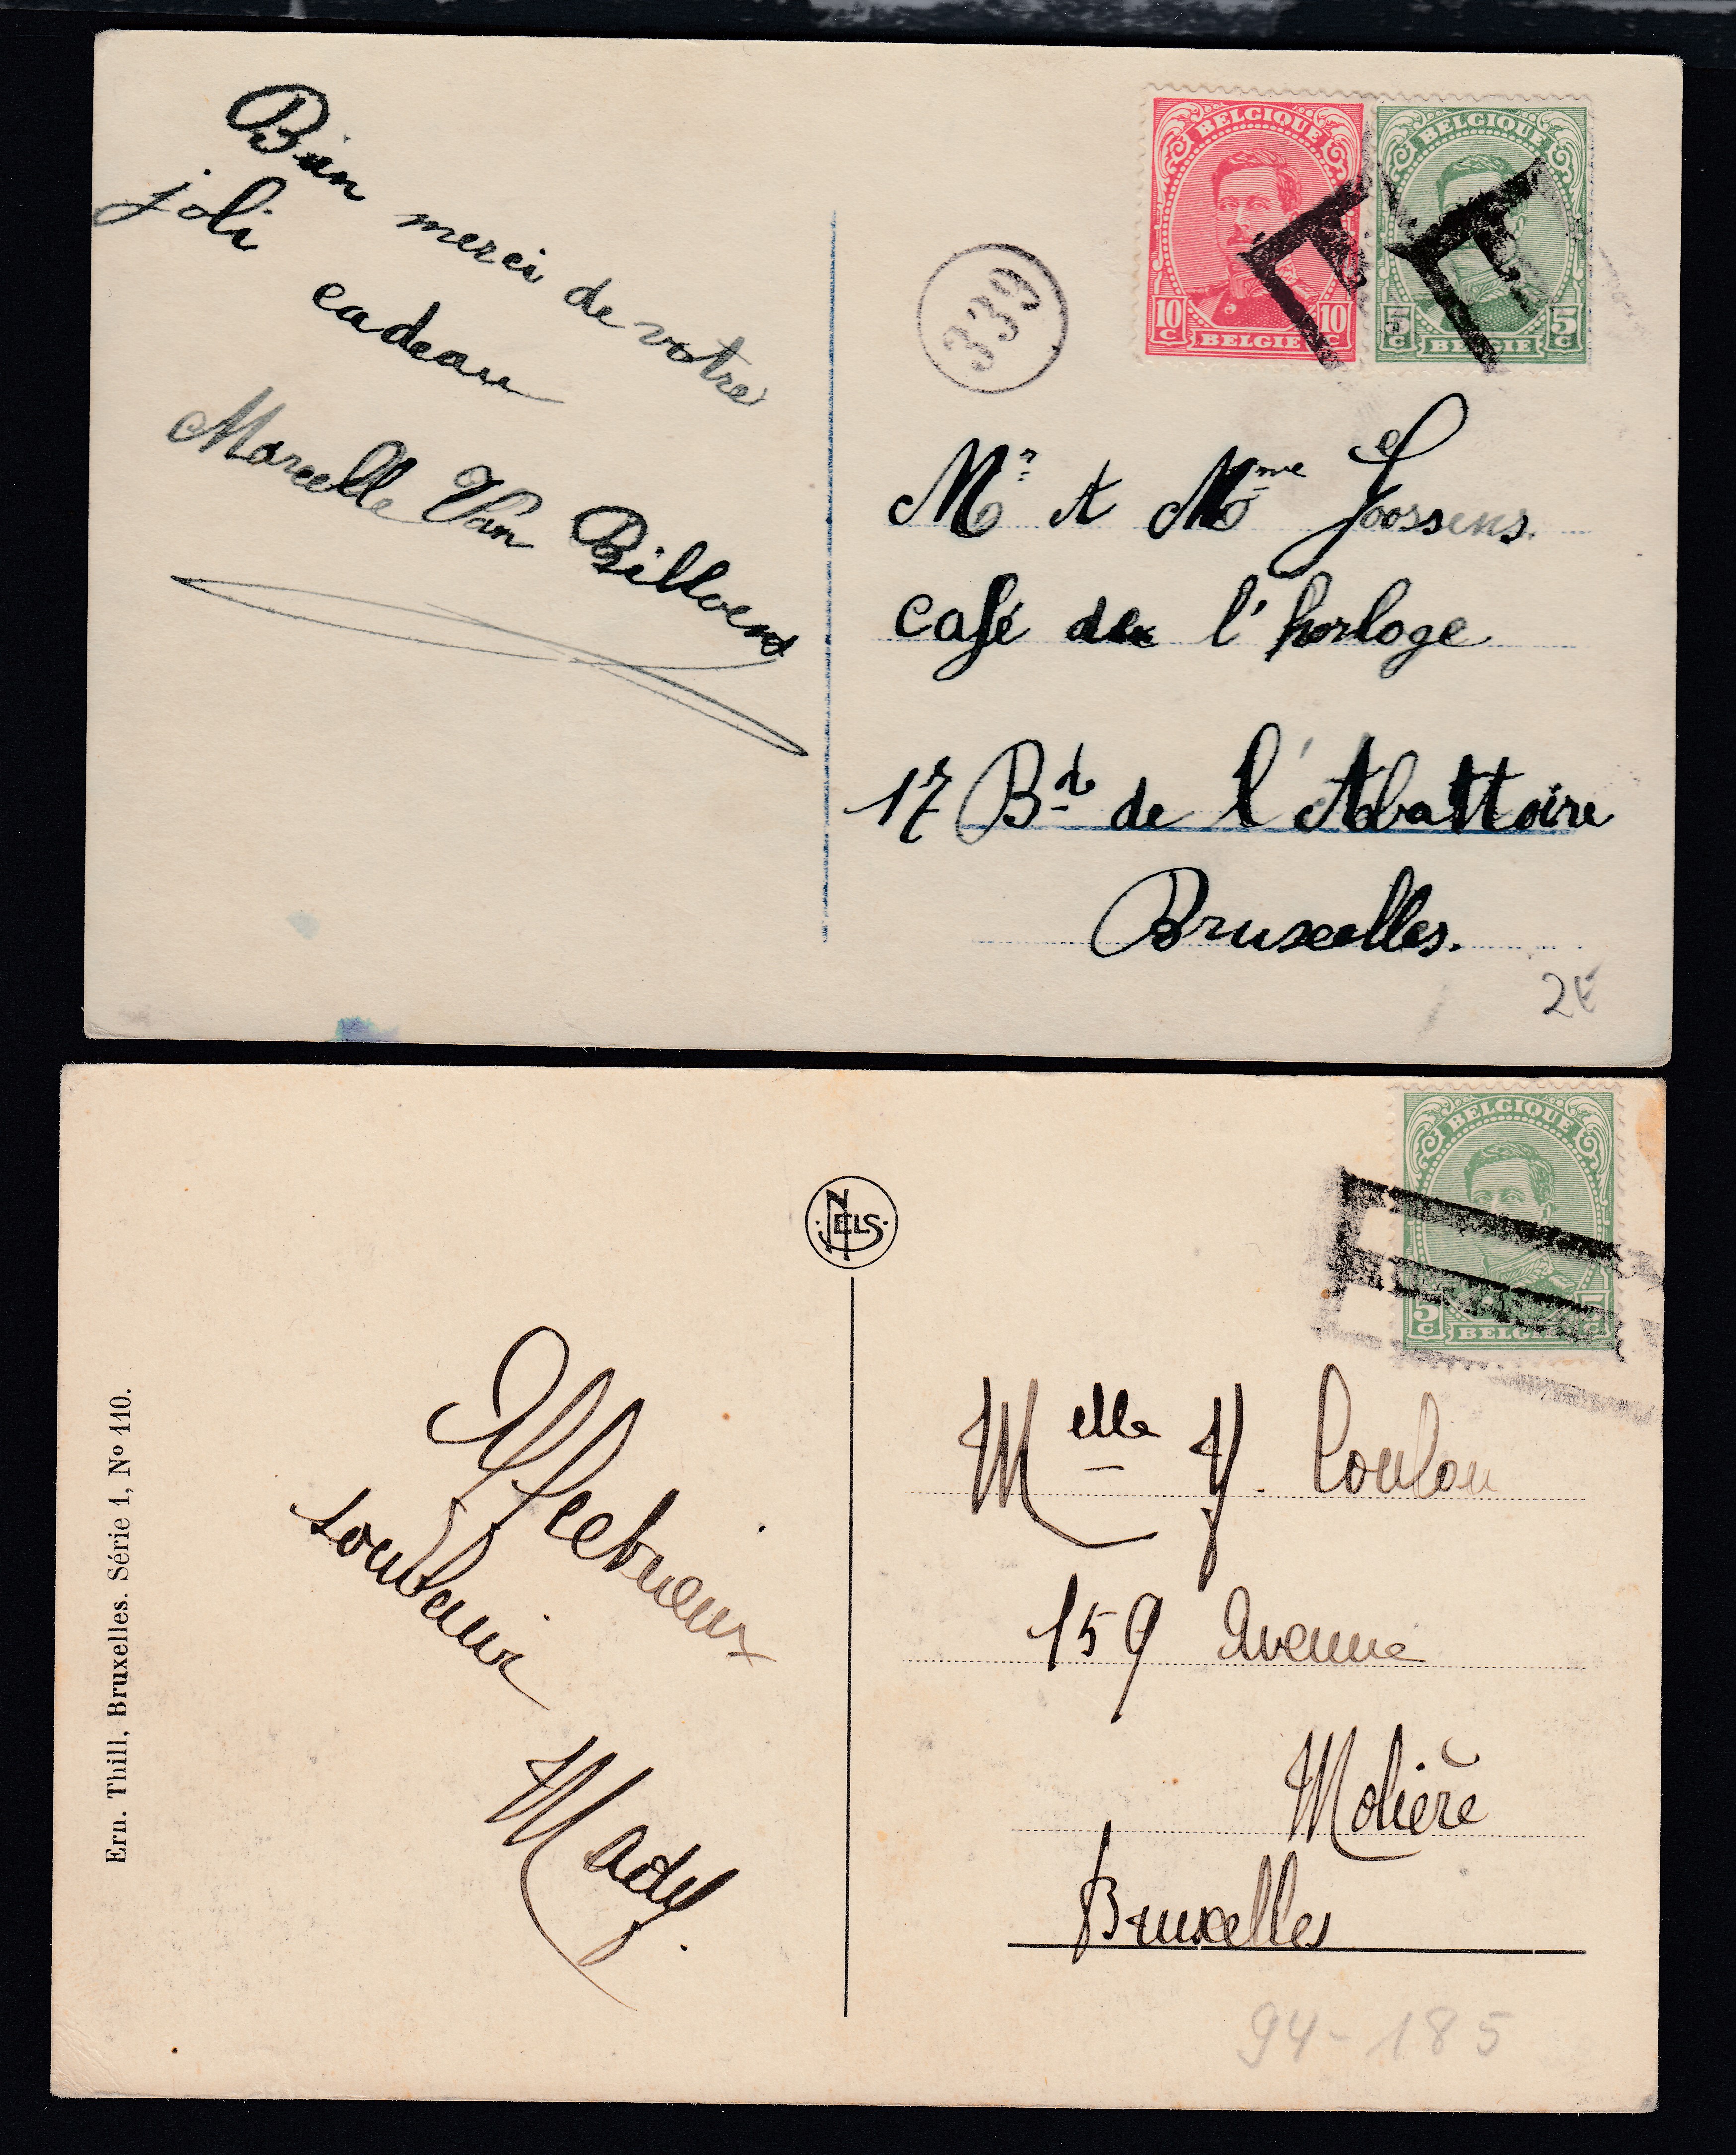 Bien merci de votre
joli cadeau
Marcelle Van Billoen
339
BELGIQUE
10 C 10 C
BELGIE
BELGIQUE
5 C 5 C
BELGIE
E E
Mr et Mme Joossens.
café de l'horloge
17 Bd de l'Abattoire
Bruxelles.
2E
NELS
BELGIQUE
5 C 5 C
BELGIE
E
Ern. Thill, Bruxelles. Série 1, No 110.
Affectueux
souvenir
Mady.
Melle Y. Coulon
159 Avenue
Molière
Bruxelles
94-185